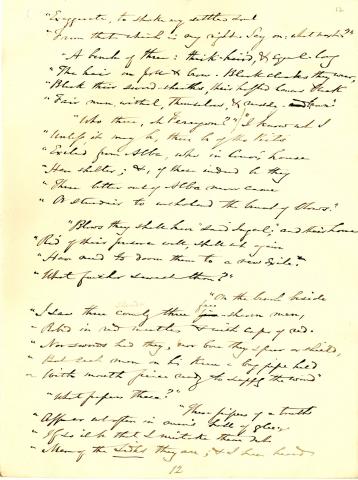 12
"Exaggerate, to shake my settled soul
"From that which is my right. Say on; what next?"
"A bench of three: thick-haired, & equal-long
"The hair on poll & brow. Black cloaks they wore,
"Black their sword-sheaths, their hafted lances black
"Fair men, withal, themselves, &
"Who these, oh Ferrogain?" "I know not I
"Unless it may be, these be of the exiles
"Exiled from Alba, who in house
"Have shelter; &, if these indeed be they
"Three better out of Alba never came
"Or sturdier to withstand the brunt of blows."
"Blows they shall have" said Ingcel; "and their house
"Rid of their presence well, shall not again
"Have need to doom them to a new exile.
"What further sawest thou?"
"On the bench beside
"I saw three comely three men,
"Robed in red mantles, & with caps of red.
"No swords had they, nor bore they spear or shield,
"But each man on his knee a bagpipe held
"With mouth-piece ready to supply the wind"
"What pipers these?"
"These pipers of a truth
"Appear not often in men's halls of glee,
"If so it be that I mistake them not:
"Men of the Sidhs they are; & I have heard
12